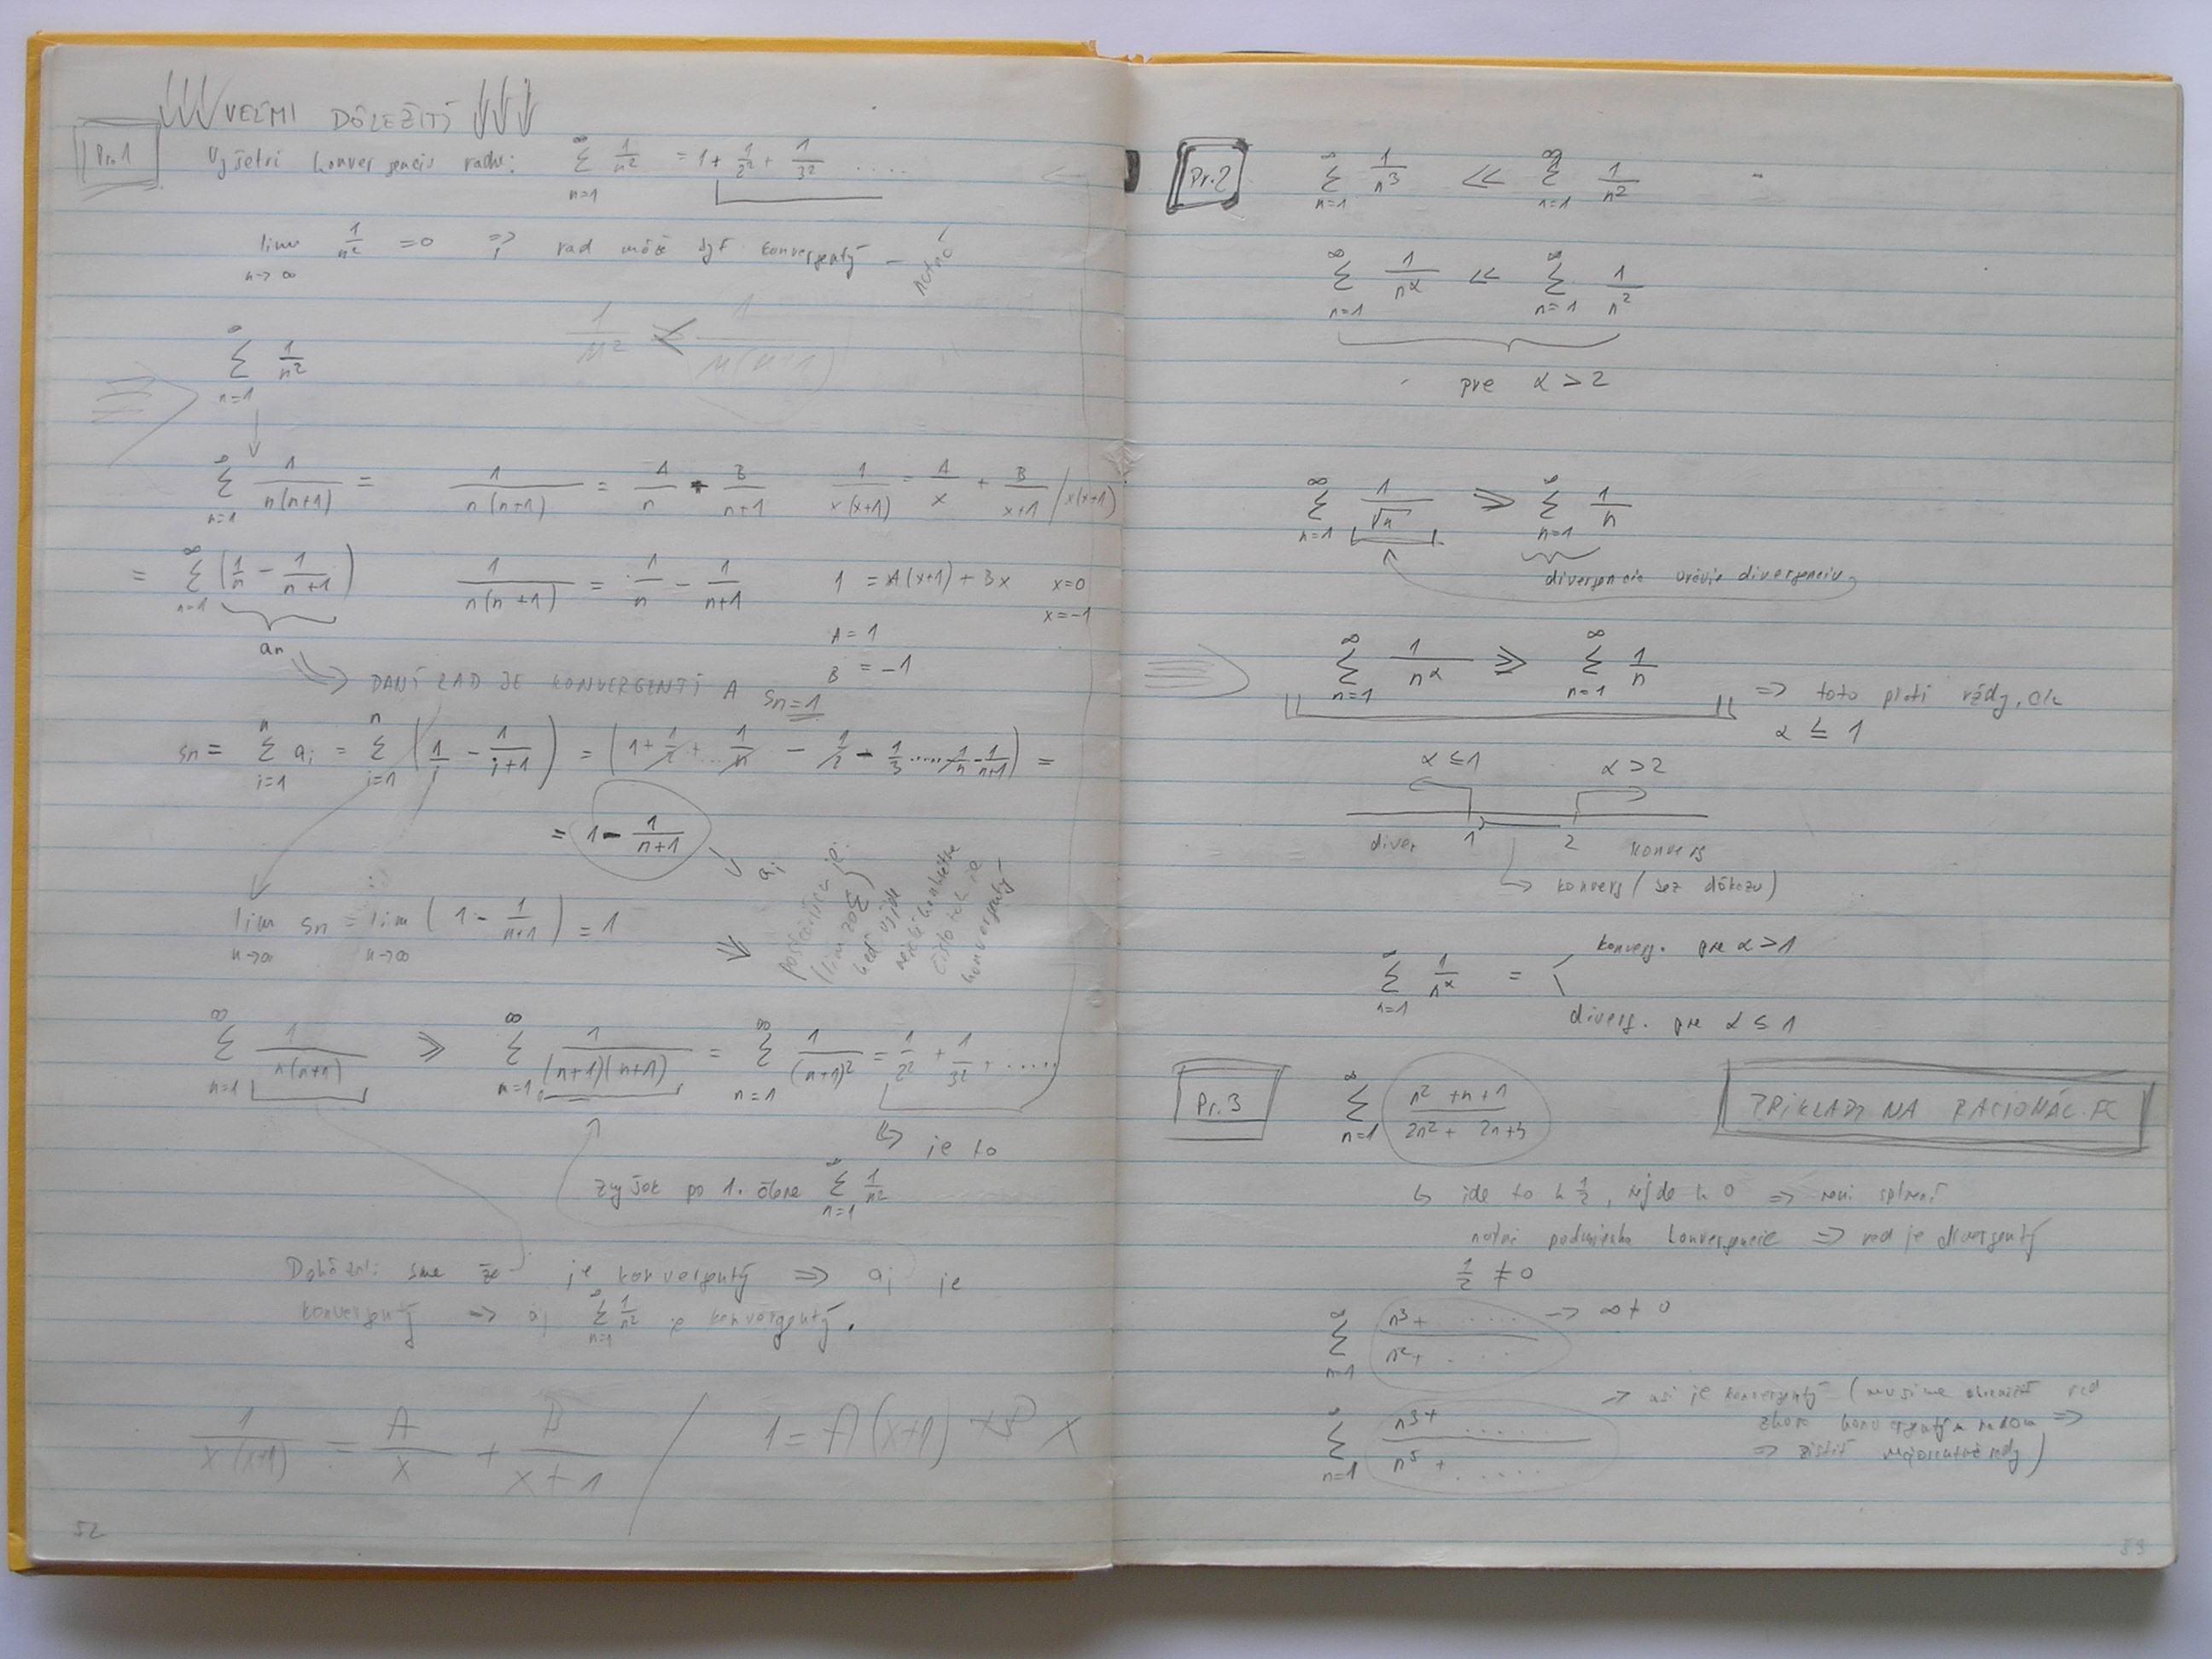 VEĽMI DÔLEŽITÍ
Pr.1
Vyšetri konvergenciu radu: ∑_{n=1}^{∞} 1/n² = 1 + 1/2² + 1/3² ....
lim_{n→∞} 1/n² = 0 ⇒ rad môže byť konvergentný – nutná
1/n² < 1/(n(n+1))
∑_{n=1}^{∞} 1/n²
∑_{n=1}^{∞} 1/(n(n+1)) = 1/(n(n+1)) = A/n + B/(n+1) 1/(x(x+1)) = A/x + B/(x+1) / x(x+1)
= ∑_{n=1}^{∞} (1/n − 1/(n+1)) 1/(n(n+1)) = 1/n − 1/(n+1) 1 = A(x+1) + Bx x=0
x=−1
an
A = 1
B = −1
DANÍ RAD JE KONVERGENTÍ A Sn=1
sn = ∑_{i=1}^{n} ai = ∑_{i=1}^{n} (1/i − 1/(i+1)) = (1 + 1/2 + ... 1/n − 1/2 − 1/3 .... 1/n − 1/(n+1)) =
= 1 − 1/(n+1)
ai
lim_{n→∞} sn = lim_{n→∞} (1 − 1/(n+1)) = 1
konvergentý
∑_{n=1}^{∞} 1/(n(n+1)) ≥ ∑_{n=1}^{∞} 1/((n+1)(n+1)) = ∑_{n=1}^{∞} 1/(n+1)² = 1/2² + 1/3² + .....
je to
zvyšok po 1. člene ∑_{n=1}^{∞} 1/n²
Dokázali sme že je konvergentý ⇒ aj je
konvergentý ⇒ aj ∑_{n=1}^{∞} 1/n² je konvergentý.
1/(x(x+1)) = A/x + B/(x+1) / 1 = A(x+1) + B x
52
Pr.2
∑_{n=1}^{∞} 1/n³ ≪ ∑_{n=1}^{∞} 1/n²
∑_{n=1}^{∞} 1/n^α ≪ ∑_{n=1}^{∞} 1/n²
pre α > 2
∑_{n=1}^{∞} 1/√n ≥ ∑_{n=1}^{∞} 1/n
divergencia divergenciu
∑_{n=1}^{∞} 1/n^α ≥ ∑_{n=1}^{∞} 1/n
⇒ toto platí vždy, ak
α ≤ 1
α ≤ 1 α > 2
diver 1 2 konverg
konverg (bez dôkazu)
∑_{n=1}^{∞} 1/n^α =
konverg. pre α > 1
diverg. pre α ≤ 1
Pr.3
∑_{n=1}^{∞} (n² + n + 1)/(2n² + 2n+3)
PRÍKLADY NA RACIONÁL. FC
ide to k 1/2, nejde k 0 ⇒ neni splnená
nutná podmienka konvergencie ⇒ rad je divergentý
1/2 ≠ 0
∑_{n=1}^{∞} (n³ + .....)/(n² + ....) → ∞ ≠ 0
∑_{n=1}^{∞} (n³ + .....)/(n⁵ + .....)
⇒ asi je konvergentý (musíme ohraničiť rad
zhora konvergentým radom ⇒
⇒ zistiť majorantné rady)
53